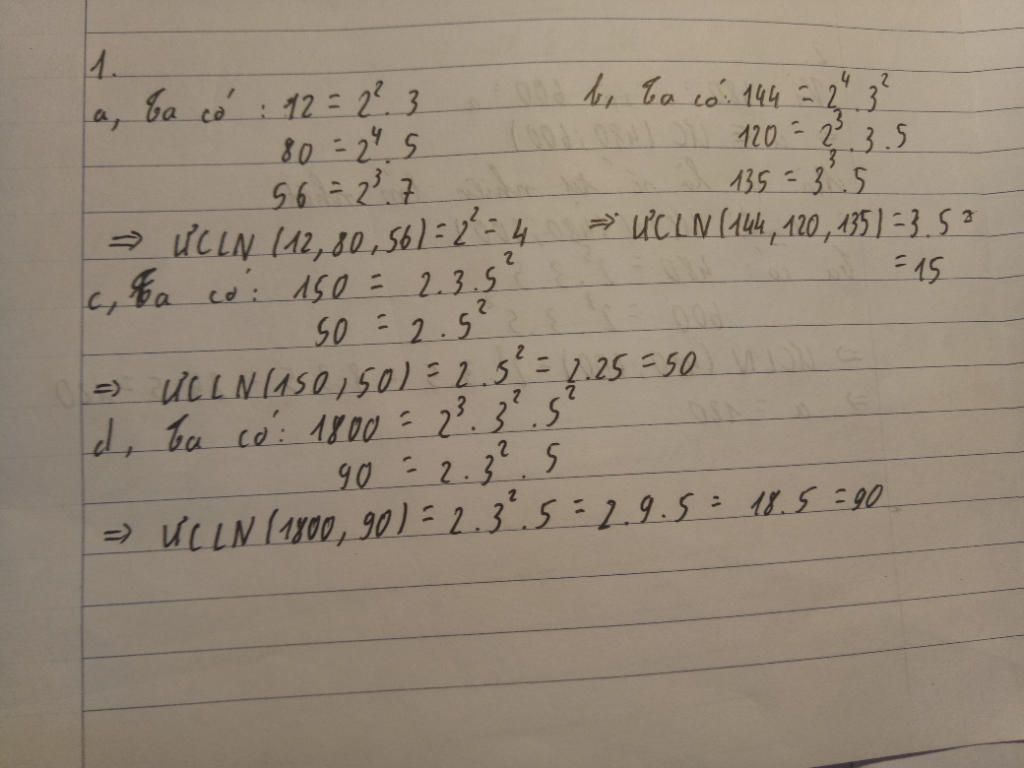 1.
a, Ta có : 12 = 2². 3
80 = 2⁴. 5
56 = 2³. 7
⇒ ƯCLN (12, 80, 56) = 2² = 4
b, Ta có: 144 = 2⁴. 3²
120 = 2³. 3. 5
135 = 3³. 5
⇒ ƯCLN (144, 120, 135) = 3. 5
= 15
c, Ta có: 150 = 2. 3. 5²
50 = 2. 5²
⇒ ƯCLN (150, 50) = 2. 5² = 2. 25 = 50
d, Ta có: 1800 = 2³. 3². 5²
90 = 2. 3². 5
⇒ ƯCLN (1800, 90) = 2. 3². 5 = 2. 9. 5 = 18. 5 = 90